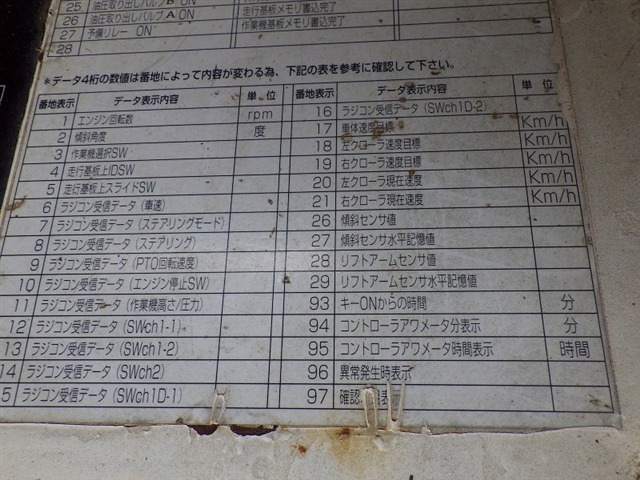 25 油圧取り出しバルブB ON
26 油圧取り出しバルブA ON 走行基板メモリ書込完了
27 予備リレー ON 作業機基板メモリ書込完了
28
*データ4桁の数値は番地によって内容が変わる為、下記の表を参考に確認して下さい。
番地表示 データ表示内容 単 位 番地表示 データ表示内容 単 位
1 エンジン回転数 rpm 16 ラジコン受信データ (SWch1D-2)
2 傾斜角度 度 17 車体速度目標 Km/h
3 作業機選択SW 18 左クローラ速度目標 Km/h
4 走行基板上IDSW 19 右クローラ速度目標 Km/h
5 走行基板上スライドSW 20 左クローラ現在速度 Km/h
6 ラジコン受信データ (車速) 21 右クローラ現在速度 Km/h
7 ラジコン受信データ (ステアリングモード) 26 傾斜センサ値
8 ラジコン受信データ (ステアリング) 27 傾斜センサ水平記憶値
9 ラジコン受信データ (PTO回転速度) 28 リフトアームセンサ値
10 ラジコン受信データ (エンジン停止SW) 29 リフトアームセンサ水平記憶値
11 ラジコン受信データ (作業機高さ/圧力) 93 キーONからの時間 分
12 ラジコン受信データ (SWch1-1) 94 コントローラアワメータ分表示 分
13 ラジコン受信データ (SWch1-2) 95 コントローラアワメータ時間表示 時間
14 ラジコン受信データ (SWch2) 96 異常発生時表示
5 ラジコン受信データ (SWch1D-1) 97 確認 表示